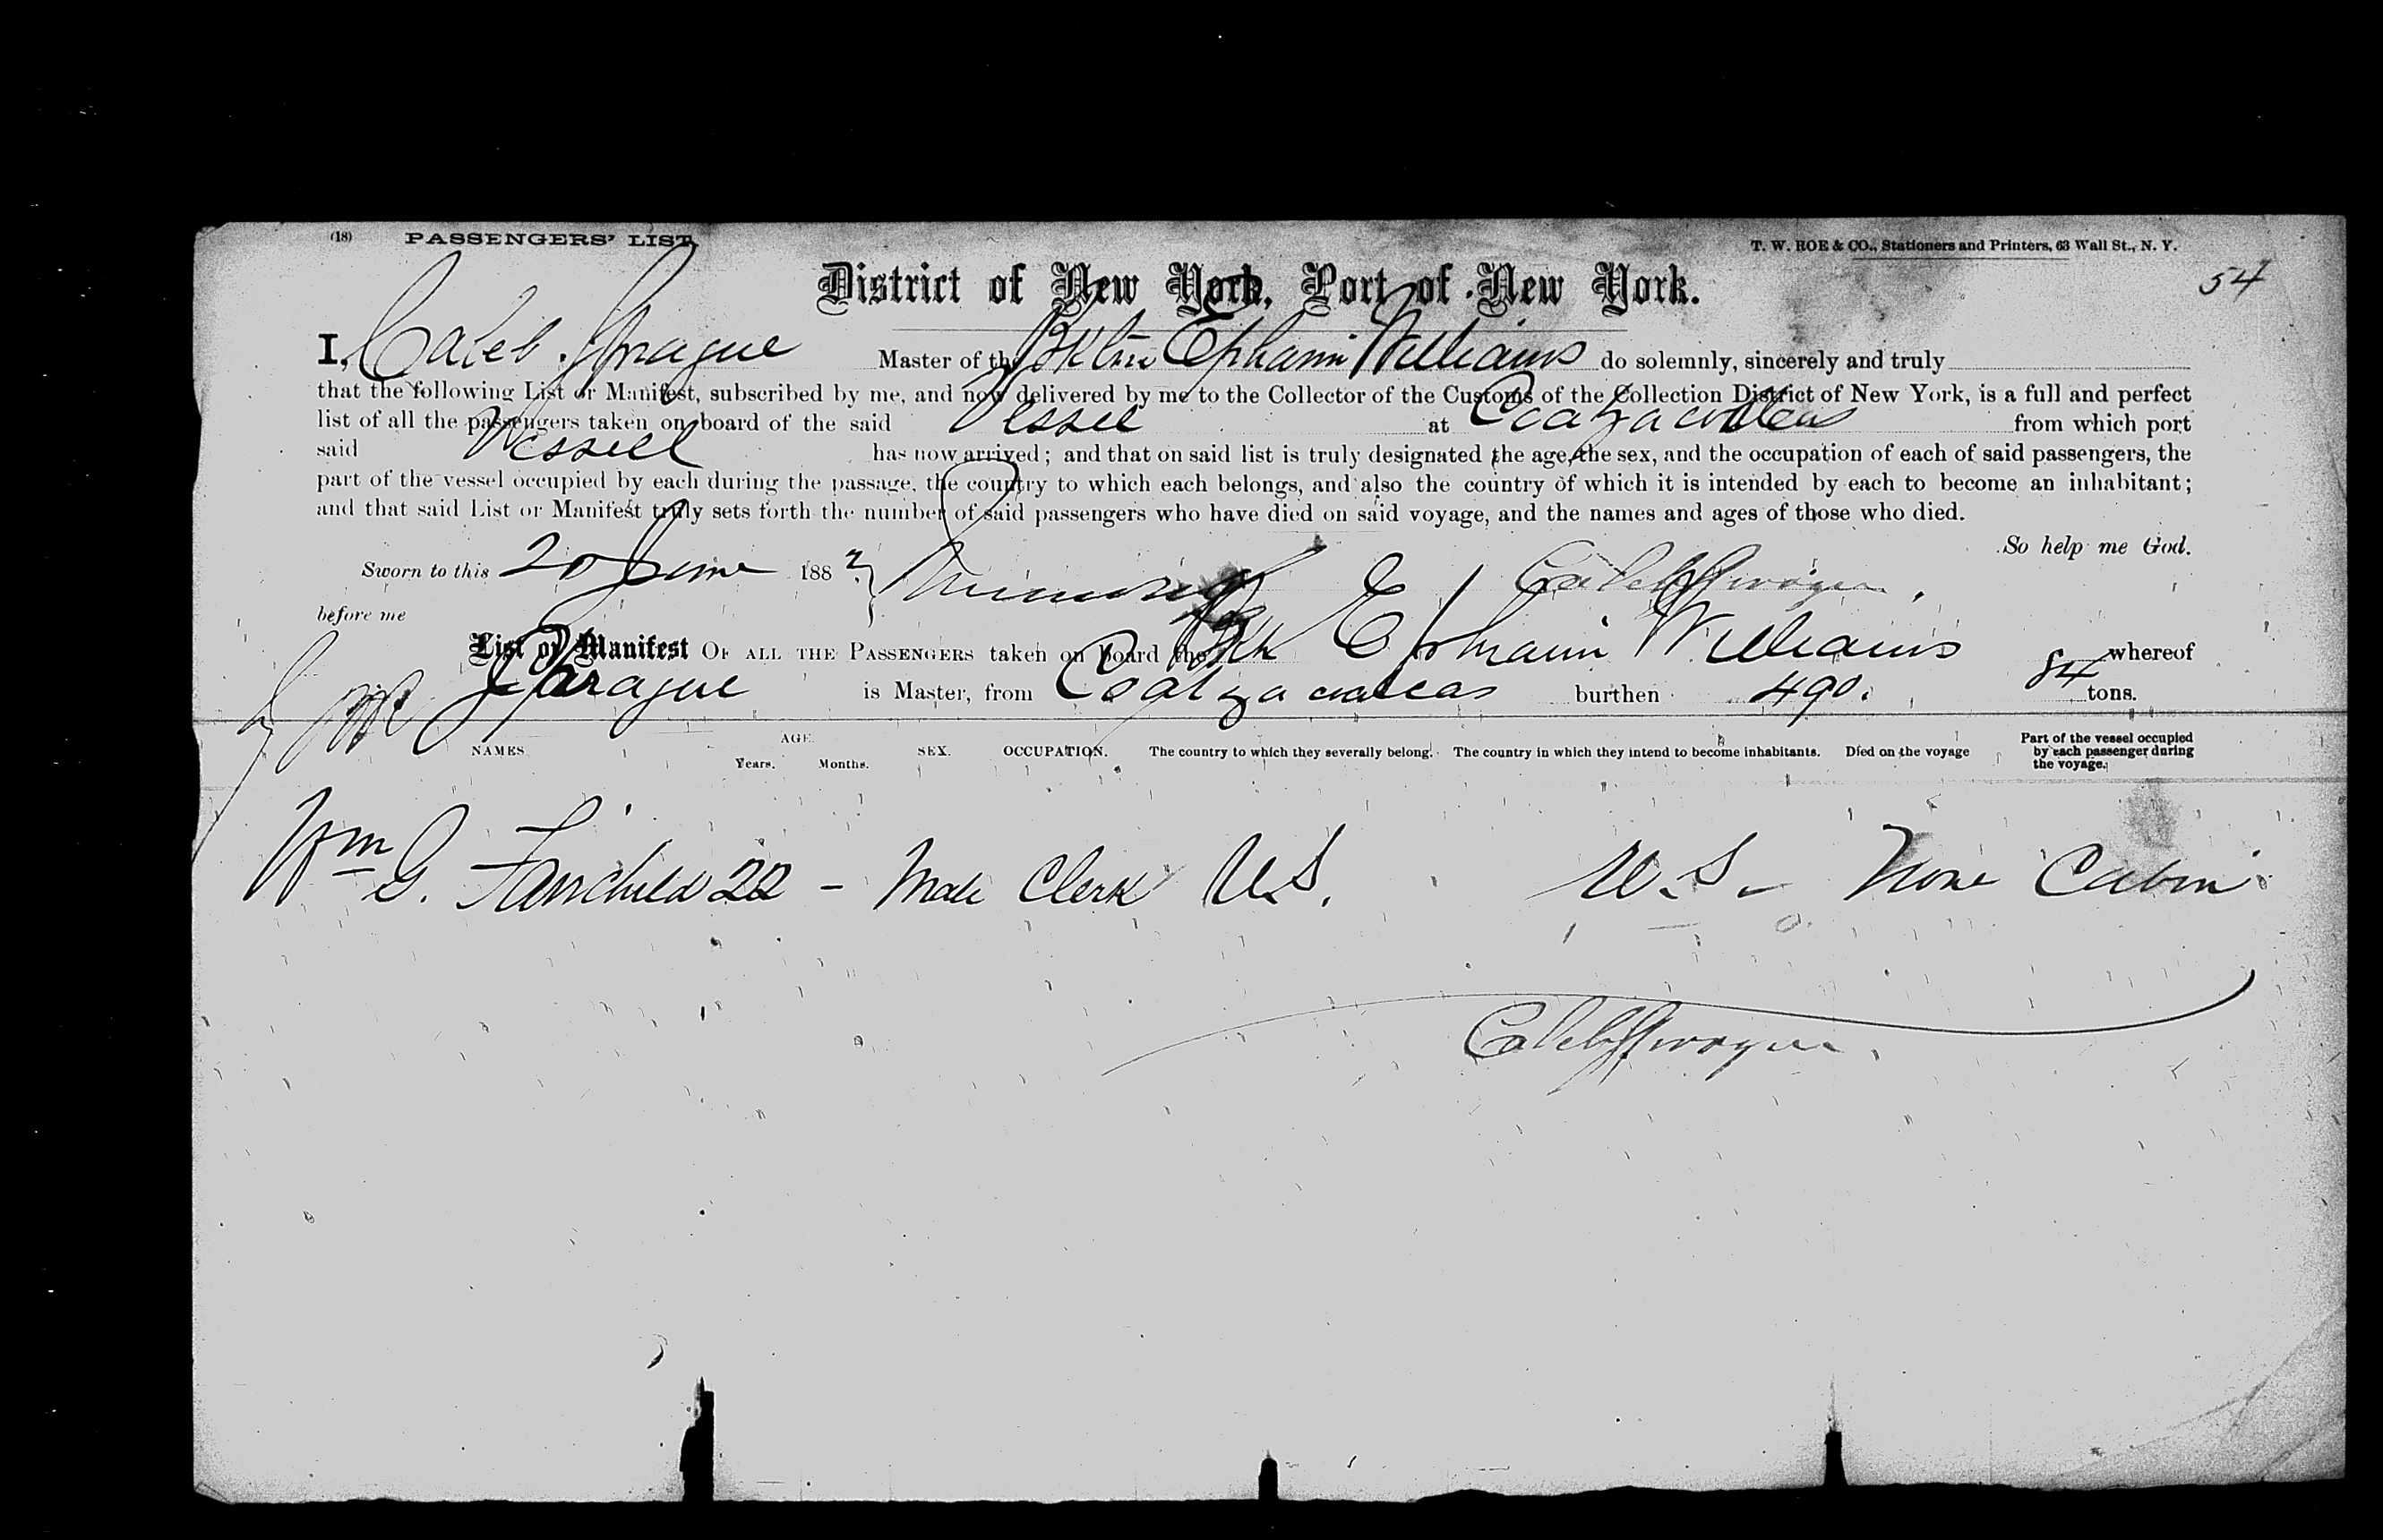 (18) PASSENGERS' LIST T. W. ROE & CO., Stationers and Printers, 63 Wall St., N. Y.
54
District of New York, Port of New York.
I, Caleb Sprague Master of the Bktne Ephraim Williams do solemnly, sincerely and truly
that the following List or Manifest, subscribed by me, and now delivered by me to the Collector of the Customs of the Collection District of New York, is a full and perfect
list of all the passengers taken on board of the said Vessel at from which port
said Vessel has now arrived; and that on said list is truly designated the age, the sex, and the occupation of each of said passengers, the
part of the vessel occupied by each during the passage, the country to which each belongs, and also the country of which it is intended by each to become an inhabitant;
and that said List or Manifest truly sets forth the number of said passengers who have died on said voyage, and the names and ages of those who died.
So help me God.
Sworn to this 20 June 188 Caleb Sprague
before me
List or Manifest OF ALL THE PASSENGERS taken on board the Bk Ephraim Williams whereof
Sprague is Master, from Coatzacoalcas burthen 490. 84 tons.
NAMES. AGE. Years. Months. SEX. OCCUPATION. The country to which they severally belong. The country in which they intend to become inhabitants. Died on the voyage Part of the vessel occupied by each passenger during the voyage.
Wm G. Fairchild 22 - Male Clerk U.S. U.S. None Cabin
Caleb Sprague